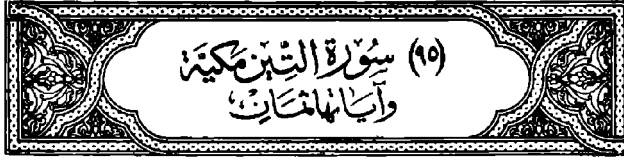 (٩٥) سُوْرَة التِّين مَكيَّة
وَآيَاتهَا ثمَانٍ